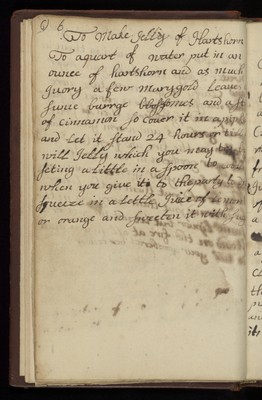 6
To Make Jelly of Hartshorn
To aquart of water put in an
ounce of hartshorn and as much
Ivory a few marygold Leaves
sume burrge blossomes and a
of cinnamon so Cover it in a
and let it stand 24 hours or
will Jelly which you may
seting a little in a spoon to
when you give it to the
squeze in a Little Juice of
or orange and sweeten it with